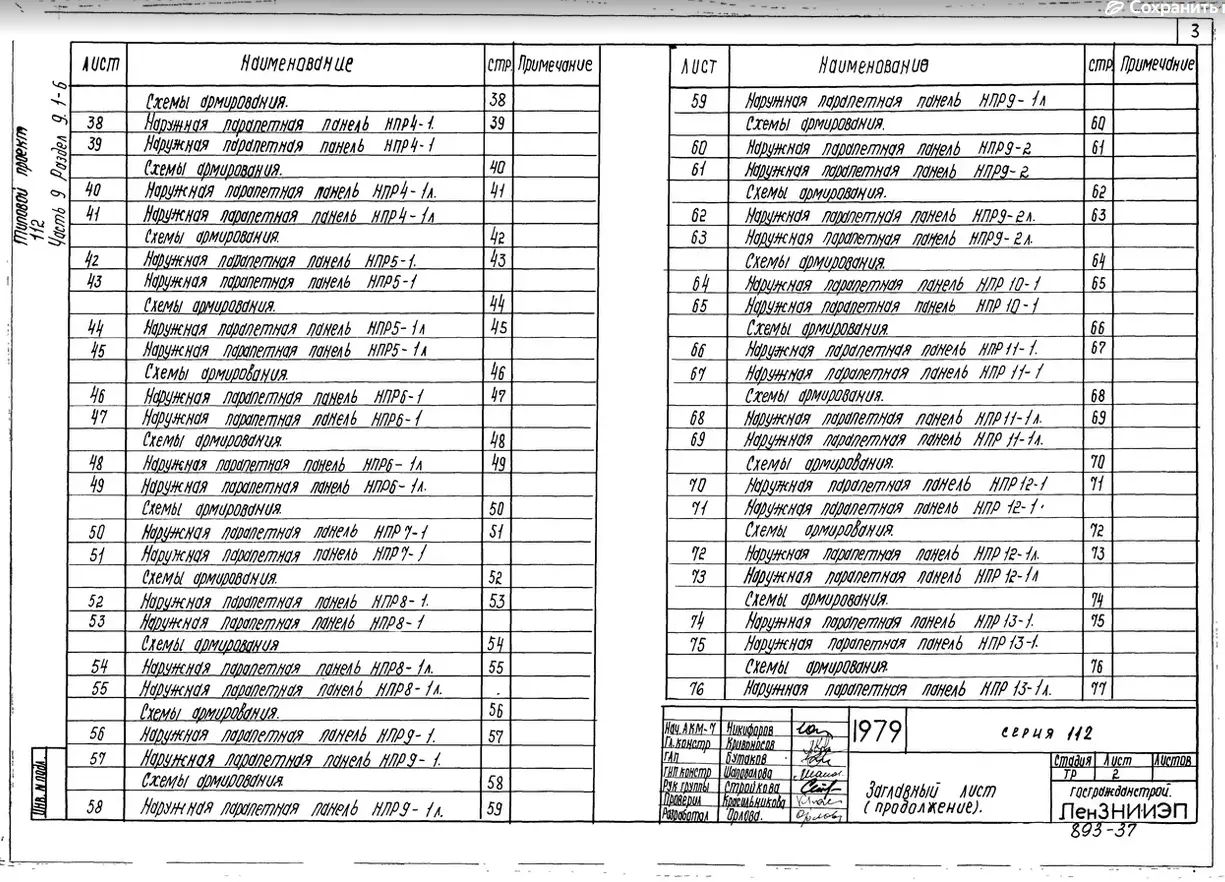 Сохранить
3
Типовой проект
112
Часть 9 Раздел 9.1-6
Лист Наименование Стр. Примечание
Схемы армирования. 38
38 Наружная парапетная панель НПР4-1. 39
39 Наружная парапетная панель НПР4-1
Схемы армирования. 40
40 Наружная парапетная панель НПР4-1л. 41
41 Наружная парапетная панель НПР4-1л
Схемы армирования. 42
42 Наружная парапетная панель НПР5-1. 43
43 Наружная парапетная панель НПР5-1
Схемы армирования. 44
44 Наружная парапетная панель НПР5-1л 45
45 Наружная парапетная панель НПР5-1л
Схемы армирования. 46
46 Наружная парапетная панель НПР6-1 47
47 Наружная парапетная панель НПР6-1
Схемы армирования. 48
48 Наружная парапетная панель НПР6-1л 49
49 Наружная парапетная панель НПР6-1л.
Схемы армирования. 50
50 Наружная парапетная панель НПР7-1 51
51 Наружная парапетная панель НПР7-1
Схемы армирования. 52
52 Наружная парапетная панель НПР8-1. 53
53 Наружная парапетная панель НПР8-1
Схемы армирования 54
54 Наружная парапетная панель НПР8-1л. 55
55 Наружная парапетная панель НПР8-1л.
Схемы армирования. 56
56 Наружная парапетная панель НПР9-1. 57
57 Наружная парапетная панель НПР9-1.
Схемы армирования. 58
58 Наружная парапетная панель НПР9-1л. 59
Лист Наименование стр. Примечание
59 Наружная парапетная панель НПР9-1л
Схемы армирования. 60
60 Наружная парапетная панель НПР9-2 61
61 Наружная парапетная панель НПР9-2
Схемы армирования. 62
62 Наружная парапетная панель НПР9-2л. 63
63 Наружная парапетная панель НПР9-2л.
Схемы армирования. 64
64 Наружная парапетная панель НПР 10-1 65
65 Наружная парапетная панель НПР 10-1
Схемы армирования. 66
66 Наружная парапетная панель НПР11-1. 67
67 Наружная парапетная панель НПР 11-1
Схемы армирования. 68
68 Наружная парапетная панель НПР11-1л. 69
69 Наружная парапетная панель НПР 11-1л.
Схемы армирования. 70
70 Наружная парапетная панель НПР12-1 71
71 Наружная парапетная панель НПР 12-1.
Схемы армирования. 72
72 Наружная парапетная панель НПР 12-1л. 73
73 Наружная парапетная панель НПР 12-1л
Схемы армирования. 74
74 Наружная парапетная панель НПР13-1. 75
75 Наружная парапетная панель НПР 13-1.
Схемы армирования. 76
76 Наружная парапетная панель НПР 13-1л. 77
Нач. АКМ-7 Никифоров
Гл. констр Кривоносов
ГАП Бутаков
ГИП констр Шаповалова
Рук группы Стройкова
Проверил Красильникова
Разработал Орлова.
1979
серия 112
Заглавный лист
(продолжение).
Стадия Лист Листов
ТР 2
госгражданстрой.
ЛенЗНИИЭП
893-37
Инв. N подл.